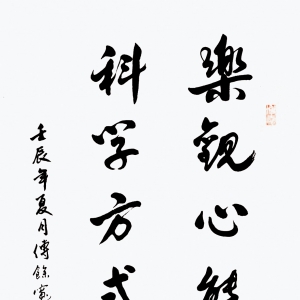 樂觀心能
科学方式
壬辰年夏月傅餘